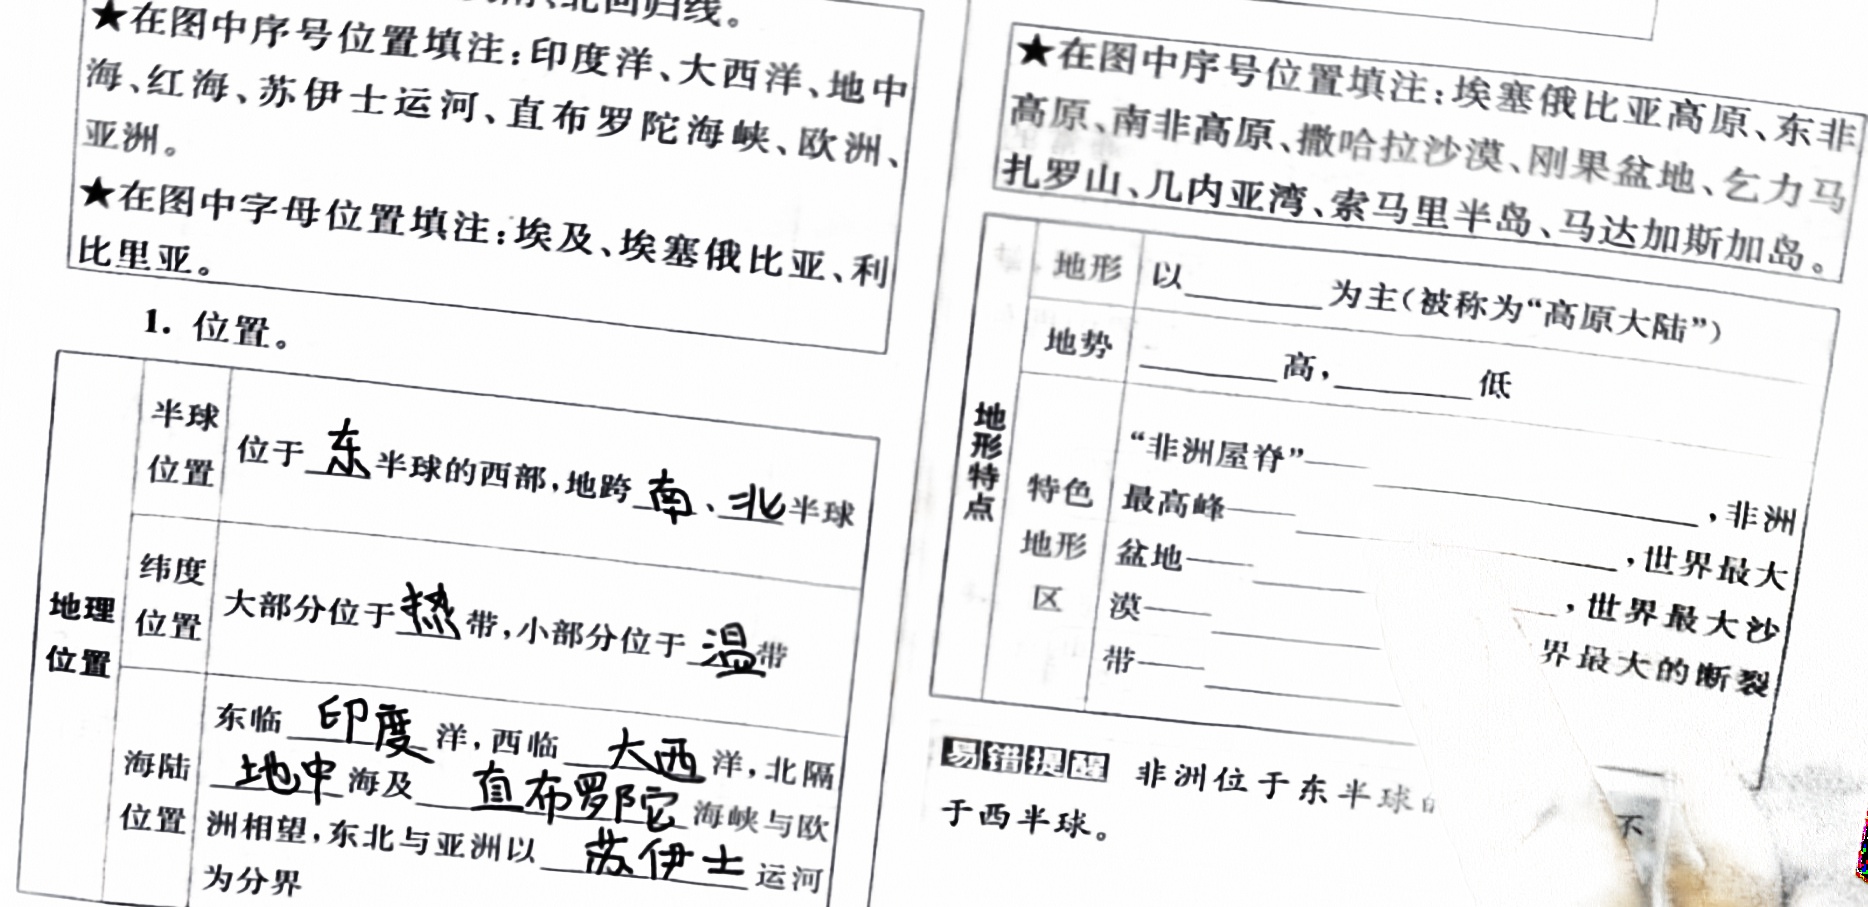 北回归线。
★在图中序号位置填注:印度洋、大西洋、地中
海、红海、苏伊士运河、直布罗陀海峡、欧洲、
亚洲。
★在图中字母位置填注:埃及、埃塞俄比亚、利
比里亚。
1. 位置。
地理位置
半球位置
位于东半球的西部,地跨南、北半球
纬度位置
大部分位于热带,小部分位于温带
海陆位置
东临印度洋,西临大西洋,北隔
地中海及直布罗陀海峡与欧
洲相望,东北与亚洲以苏伊士运河
为分界
★在图中序号位置填注:埃塞俄比亚高原、东非
高原、南非高原、撒哈拉沙漠、刚果盆地、乞力马
扎罗山、几内亚湾、索马里半岛、马达加斯加岛。
地形特点
地形
以______为主(被称为“高原大陆”)
地势
______高,______低
特色地形区
“非洲屋脊”——______,非洲
最高峰——______,世界最大
盆地——______,世界最大沙
漠——______界最大的断裂
带——______
易错提醒 非洲位于东半球
于西半球。
不